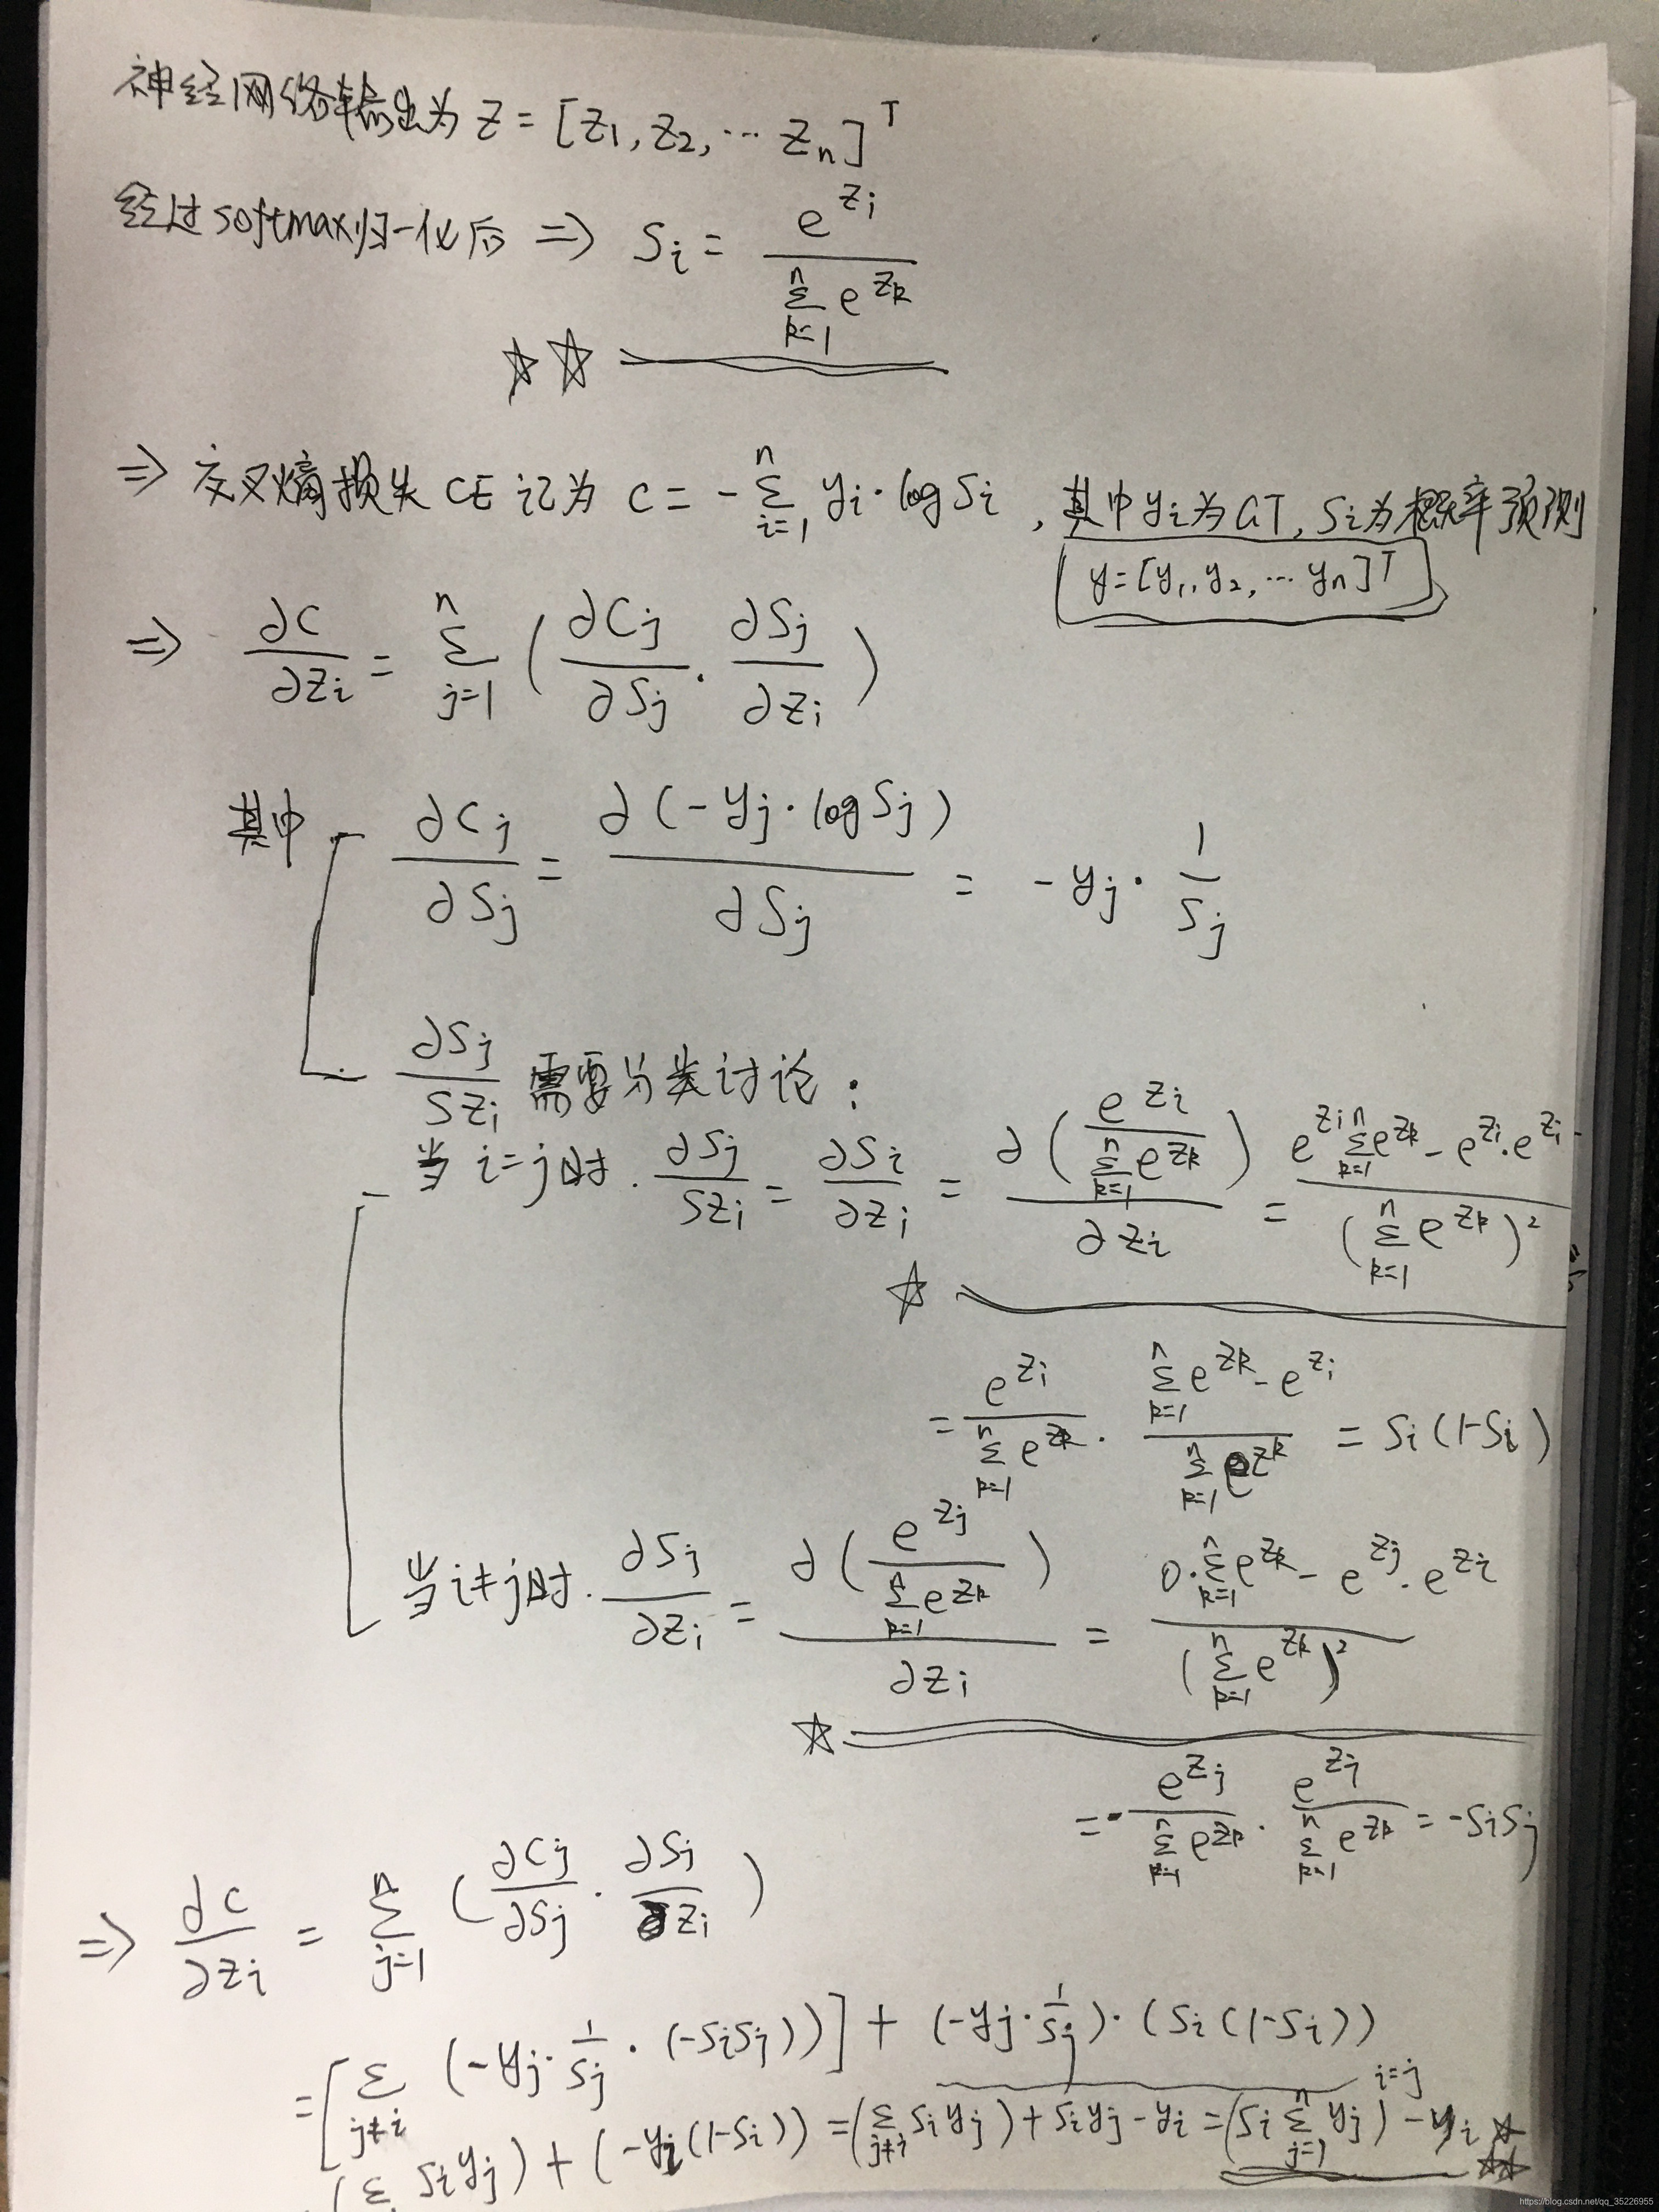 神经网络输出为 z = [z₁, z₂, … zₙ]ᵀ
经过softmax归一化后 ⇒ Sᵢ = e^{zᵢ} / Σ_{k=1}^{n} e^{z_k}
☆☆
⇒ 交叉熵损失 CE 记为 C = -Σ_{i=1}^{n} yᵢ·log Sᵢ , 其中 yᵢ为GT, Sᵢ为概率预测
y = [y₁, y₂, … yₙ]ᵀ
⇒ ∂C/∂zᵢ = Σ_{j=1}^{n} ( ∂Cⱼ/∂Sⱼ · ∂Sⱼ/∂zᵢ )
其中 ∂Cⱼ/∂Sⱼ = ∂(-yⱼ·log Sⱼ)/∂Sⱼ = -yⱼ · 1/Sⱼ
∂Sⱼ/Szᵢ 需要分类讨论:
当 i=j时. ∂Sⱼ/Szᵢ = ∂Sᵢ/∂zᵢ = ∂( e^{zᵢ} / Σ_{k=1}^{n} e^{z_k} )/∂zᵢ = ( e^{zᵢ} Σ_{k=1}^{n} e^{z_k} - e^{zᵢ}·e^{zᵢ} ) / ( Σ_{k=1}^{n} e^{z_k} )²
☆
= e^{zᵢ} / Σ_{k=1}^{n} e^{z_k} · ( Σ_{k=1}^{n} e^{z_k} - e^{zᵢ} ) / Σ_{k=1}^{n} e^{z_k} = Sᵢ(1-Sᵢ)
当 i≠j时. ∂Sⱼ/∂zᵢ = ∂( e^{zⱼ} / Σ_{k=1}^{n} e^{z_k} )/∂zᵢ = ( 0·Σ_{k=1}^{n} e^{z_k} - e^{zⱼ}·e^{zᵢ} ) / ( Σ_{k=1}^{n} e^{z_k} )²
☆
= - e^{zⱼ} / Σ_{k=1}^{n} e^{z_k} · e^{zⱼ} / Σ_{k=1}^{n} e^{z_k} = -SᵢSⱼ
⇒ ∂C/∂zᵢ = Σ_{j=1}^{n} ( ∂Cⱼ/∂Sⱼ · ∂Sⱼ/∂zᵢ )
= [ Σ_{j≠i} (-yⱼ · 1/Sⱼ · (-SᵢSⱼ)) ] + (-yⱼ · 1/Sⱼ)·(Sᵢ(1-Sᵢ)) i=j
(Σ Sᵢyⱼ) + (-yᵢ(1-Sᵢ)) = (Σ_{j≠i} Sᵢyⱼ) + Sᵢyⱼ - yᵢ = (Sᵢ Σ_{j=1}^{n} yⱼ) - yᵢ ☆☆☆
https://blog.csdn.net/qq_35226955